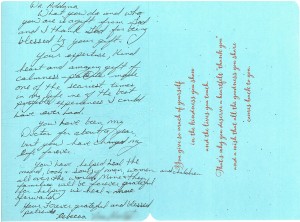 What you do and who
you are is a gift from God
and I thank God for being
blessed by your gift.
Your expertise, kind
heart and amazing gift of
calmness
one of the scariest times
in my life one of the best
possible experiences I could
have ever had.
You have been my
Doctor for about a year
but you have changed my
life forever.
You have helped heal the
mind, body & soul of men, women and children
all over the world. Many
families will be forever grateful
for helping us heal &
forward.
Your forever grateful and blessed
patient
Rebecca
You give so much of yourself
in the kindness you show
and the lives you touch
That's why you deserve a heartfelt "thank you"
and a wish that all the goodness you share
comes back to you.